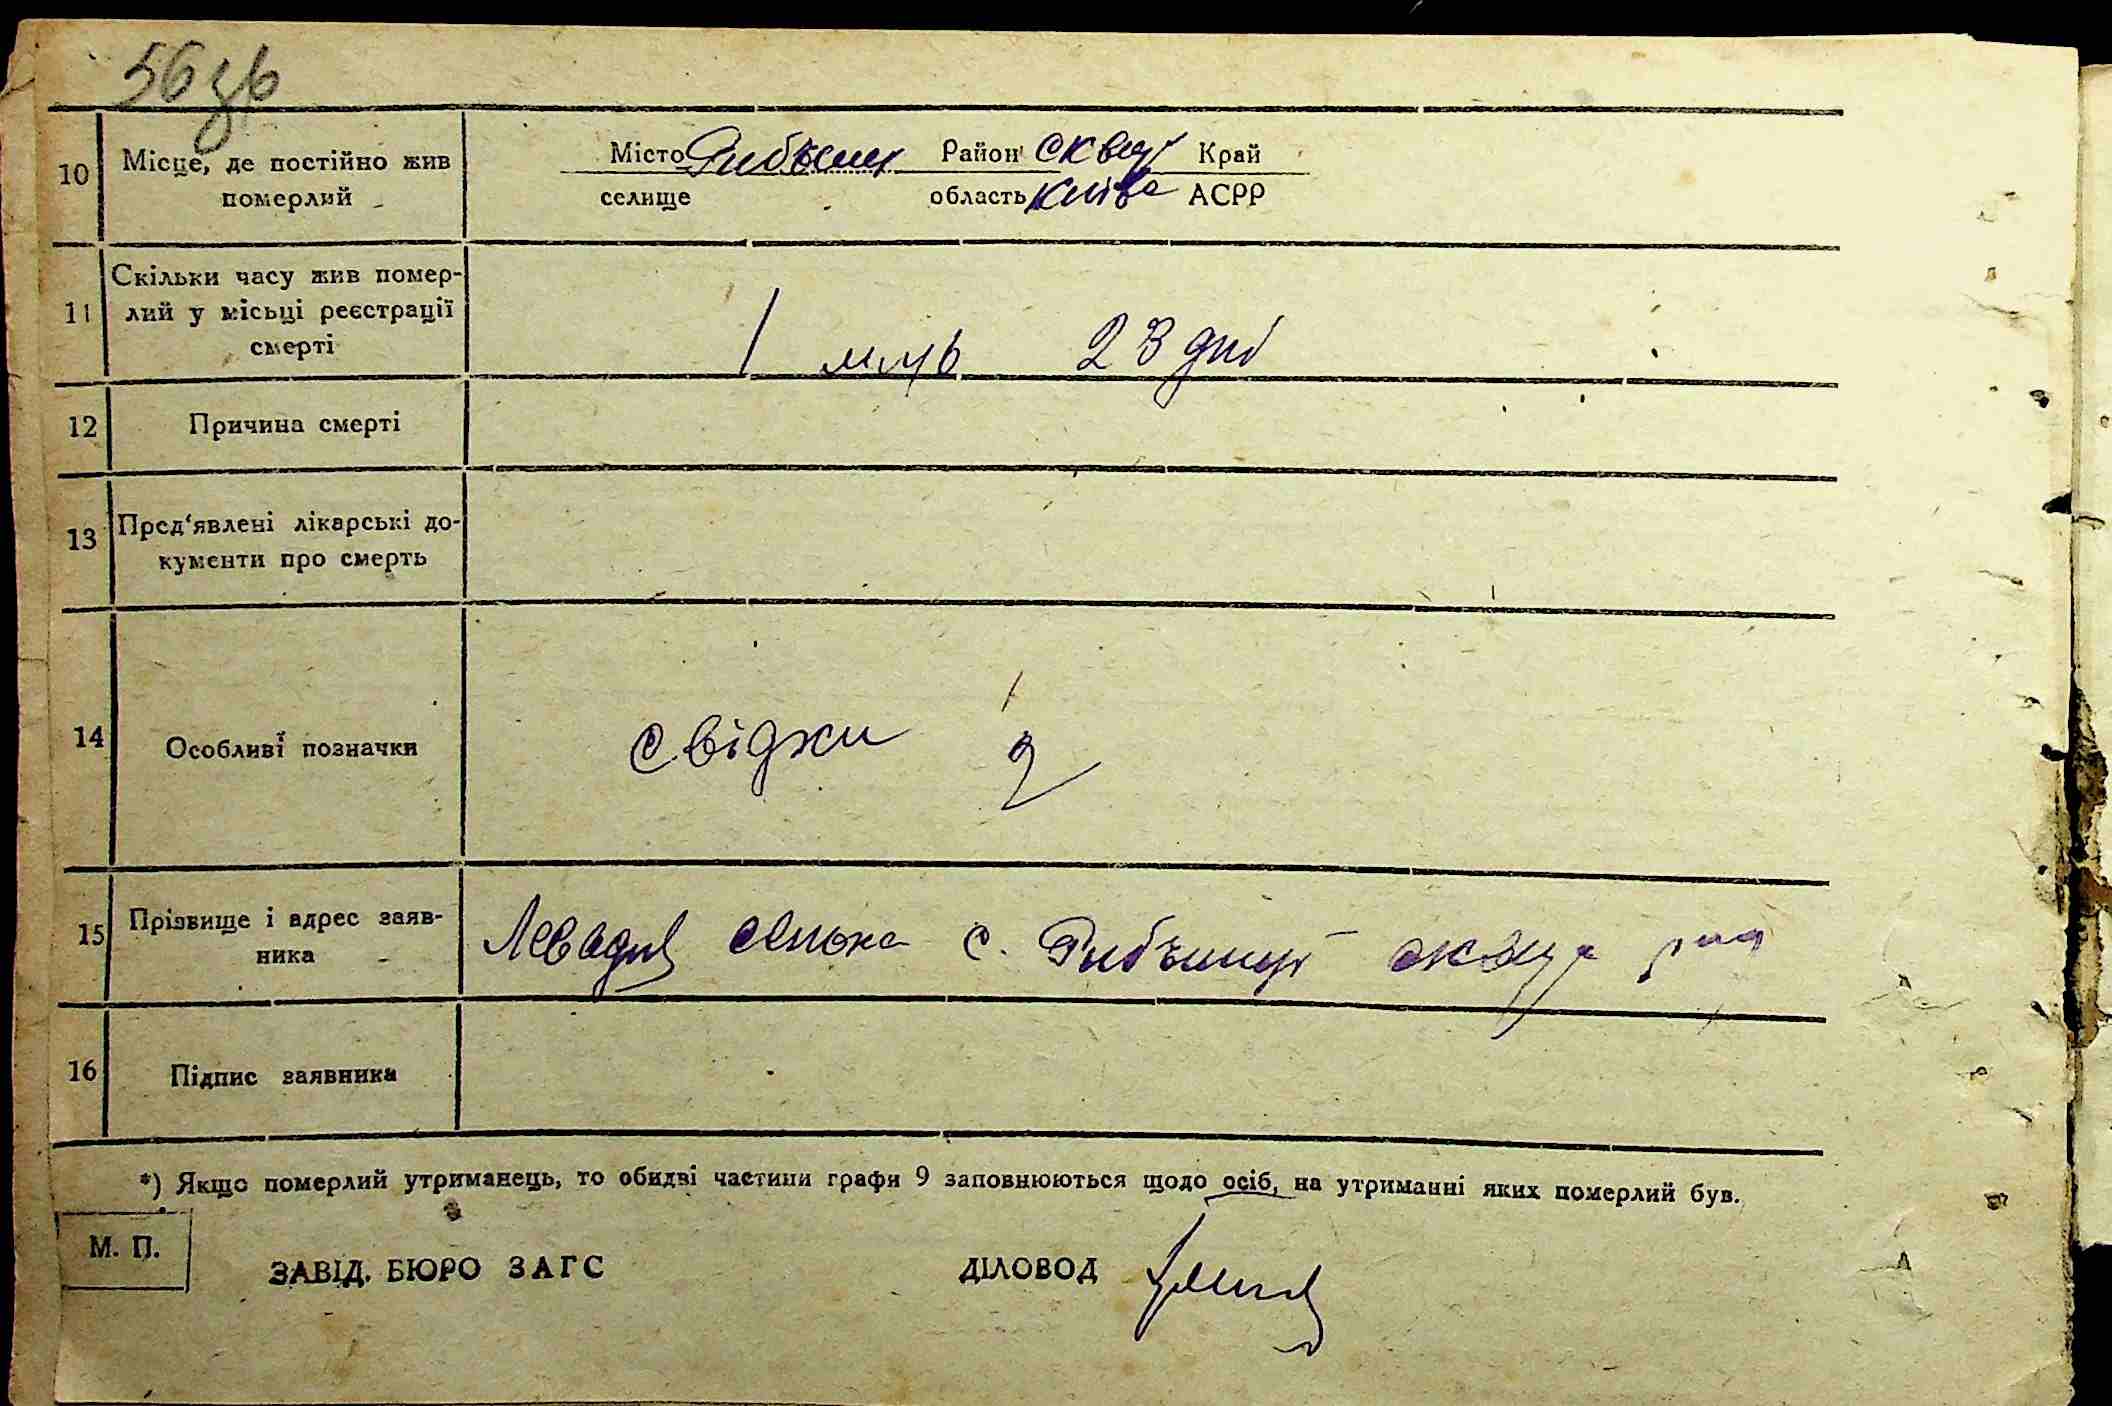 56 зв
10 Місце, де постійно жив померлий Місто селище Район Скви Край область Київ АСРР
11 Скільки часу жив помер-
лий у місьці реєстрації
смерті
1 23 дні
12 Причина смерті
13 Пред'явлені лікарські до-
кументи про смерть
14 Особливі позначки свідки 1
2
15 Прізвище і адрес заяв-
ника
с.
16 Підпис заявника
*) Якщо померлий утриманець, то обидві частини графи 9 заповнюються щодо осіб, на утриманні яких померлий був.
М. П.
ЗАВІД. БЮРО ЗАГС ДІЛОВОД